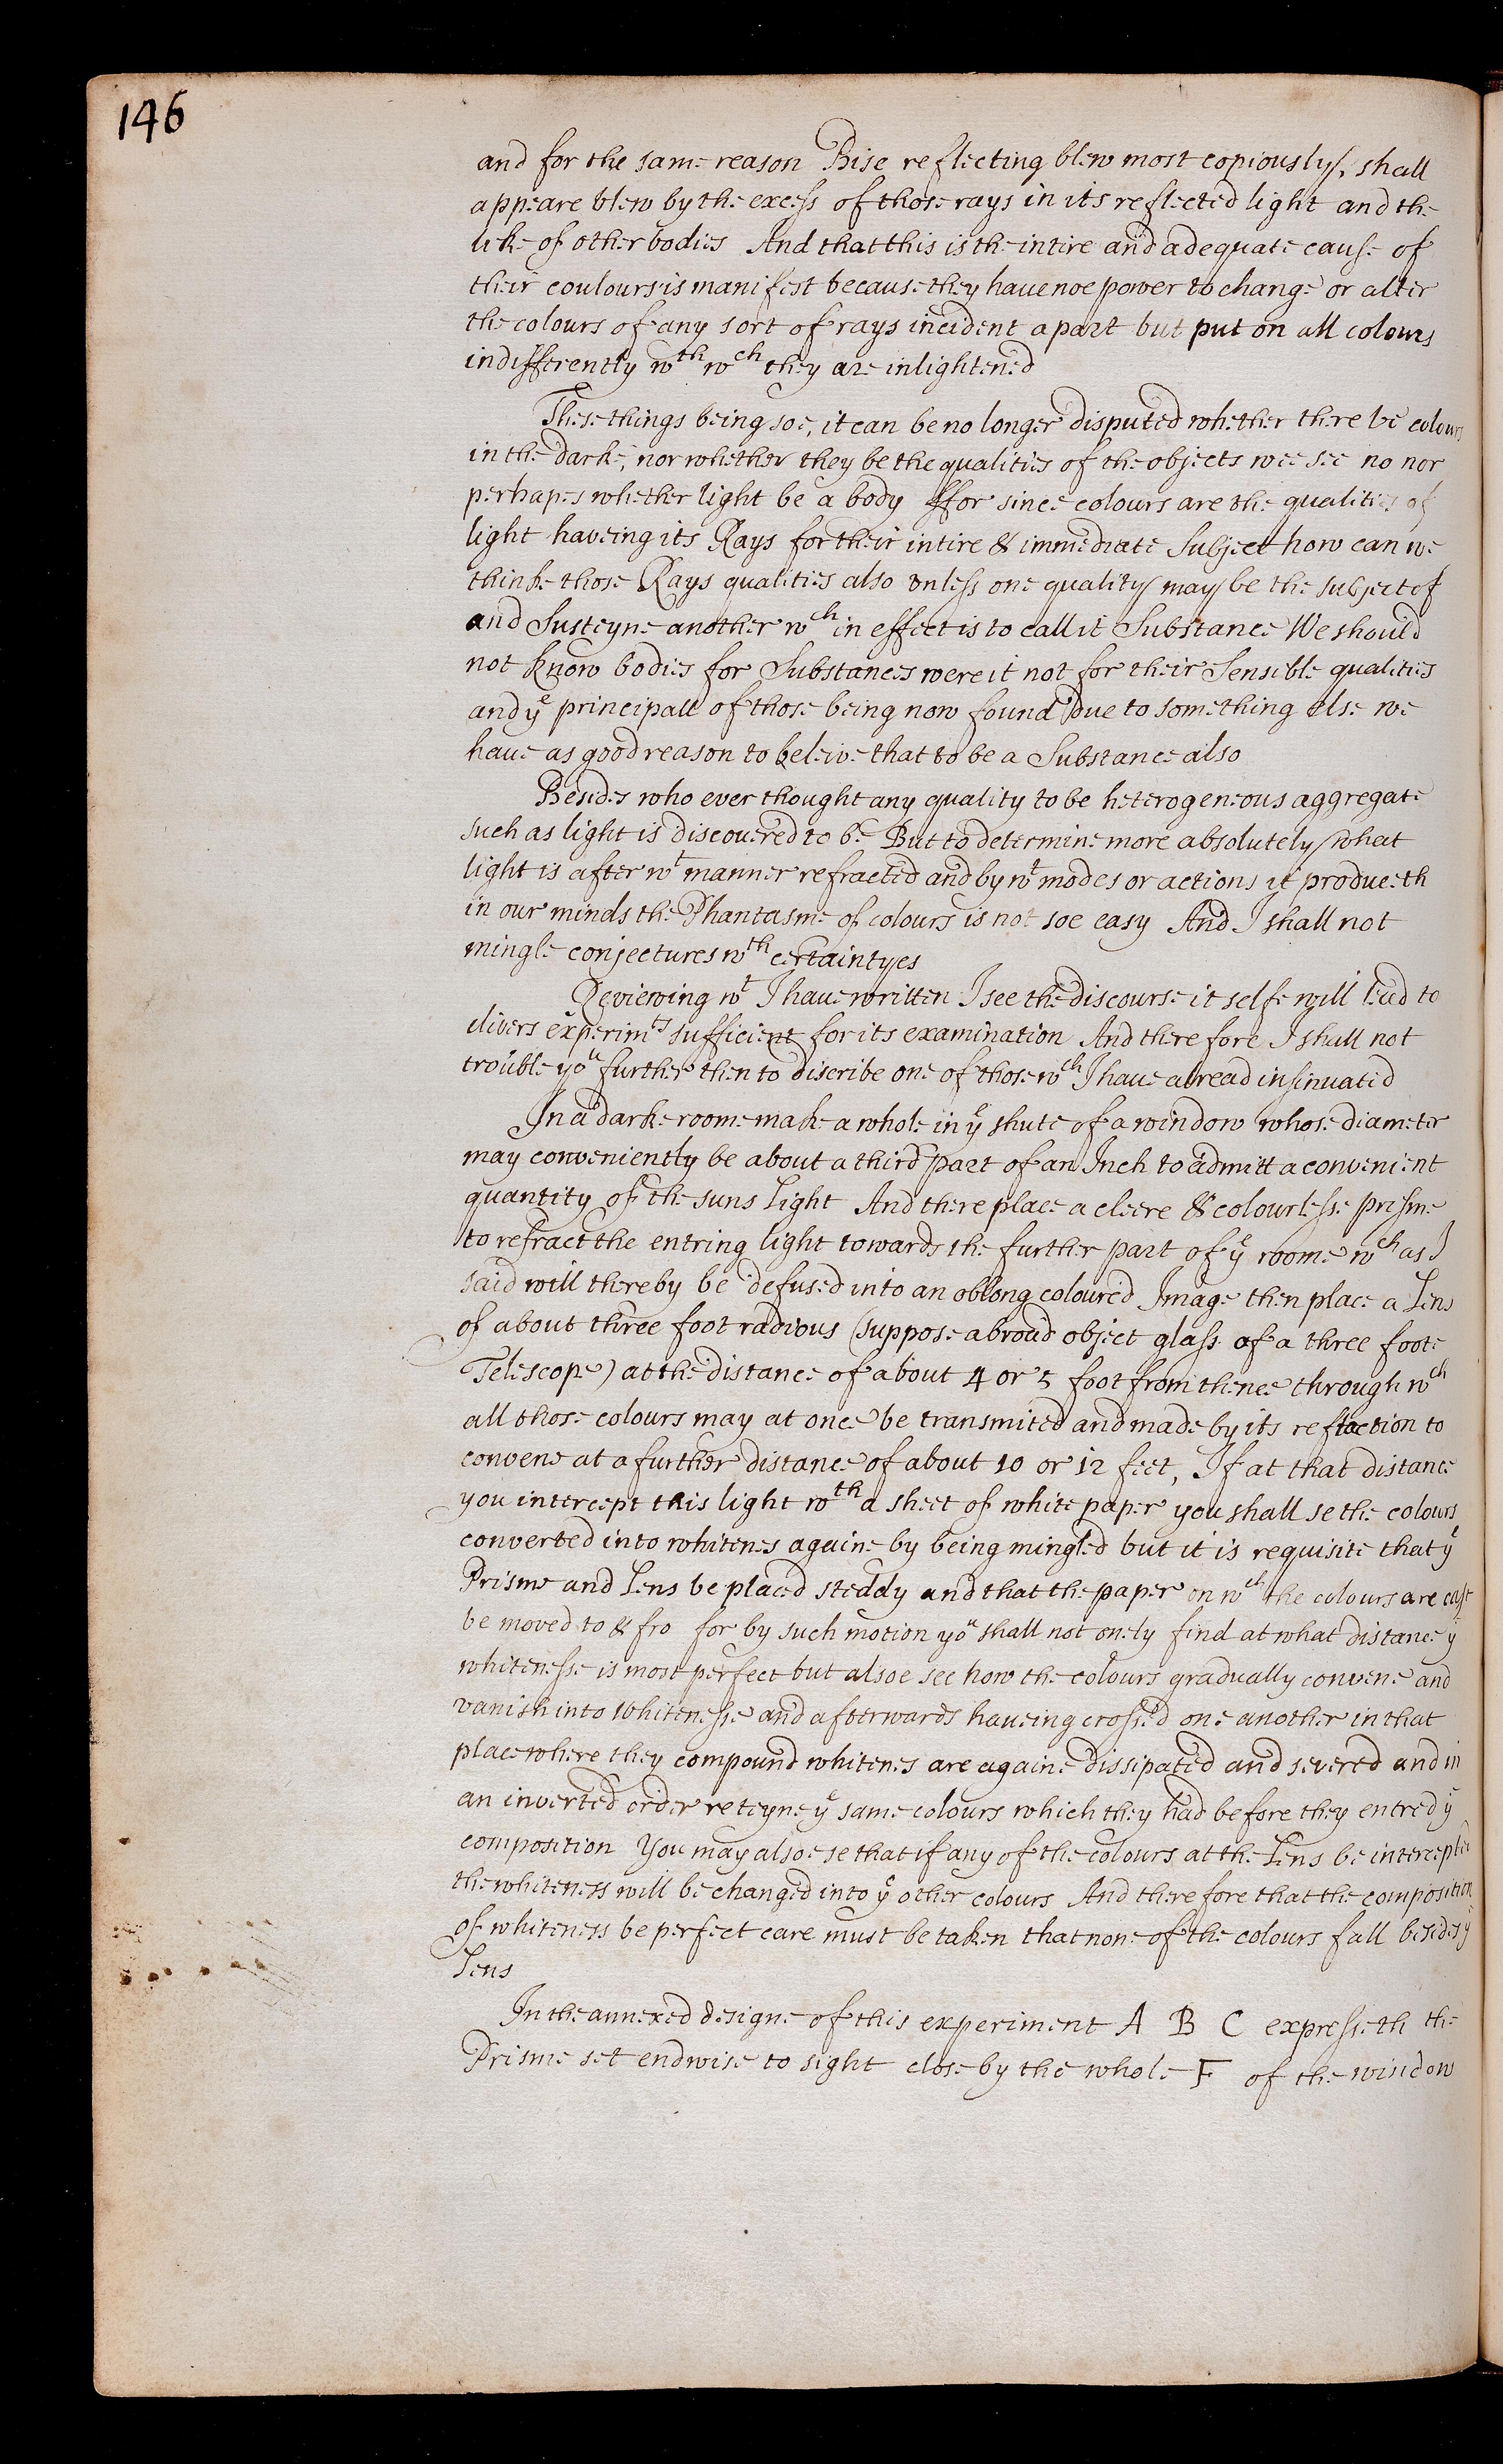 146
and for the same reason Bise reflecting blew most copiously, shall
appeare blew by the excess of those rays in its reflected light and the
like of other bodies And that this is the intire and adequate cause of
their coulours is manifest because they haue noe power to change or alter
the colours of any sort of rays incident apart but put on all colours
indifferently wth wch they are inlightened
These things being soe, it can be no longer disputed whether there be colours
in the darke, nor whether they be the qualities of the objects wee see no nor
perhapes whether light be a body ffor since colours are the qualities of
light haveing its Rays for their intire & immediate Subject how can we
thinke those Rays qualities also vnless one quality may be the subject of
and Susteyne another wch in effect is to call it Substance We should
not know bodies for Substances were it not for their Sensible qualities
and ye principall of those being now found due to something else we
haue as good reason to beleive that to be a Substance also
Besides who ever thought any quality to be heterogeneous aggregate
such as light is discouered to be But to determine more absolutely what
light is after wt manner refracted and by wt modes or actions it produceth
in our minds the Phantasme of colours is not soe easy And I shall not
mingle conjectures wth certaintyes
Reviewing wt I haue written I see the discourse it selfe will lead to
divers experimts sufficient for its examination And therefore I shall not
trouble you further then to discribe one of those wch I haue alread insinuated
In a darke roome make a whole in ye shute of a window whose diameter
may conveniently be about a third part of an Inch to admitt a convenient
quantity of the suns Light And there place a cleere & colourlesse prisme
to refract the entring light towards the further part of ye roome wch as I
said will thereby be defused into an oblong coloured Image then place a Lens
of about three foot radious (suppose a broad object glass of a three foote
Telescope) at the distance of about 4 or 5 foot from thence through wch
all those colours may at once be transmited and made by its refraction to
convene at a further distance of about 10 or 12 feet, If at that distance
you intercept this light wth a sheet of white paper you shall se the colours
converted into whitenes againe by being mingled but it is requisite that ye
Prisme and Lens be placed steddy and that the paper on wch the colours are cast
be moved to & fro for by such motion you shall not onely find at what distance ye
whitenesse is most perfect but alsoe see how the colours gradually convene and
vanish into whitenesse and afterwards haueing crossed one another in that
place where they compound whitenes are againe dissipated and severed and in
an inverted order reteyne ye same colours which they had before they entred ye
composition You may alsoe se that if any of the colours at the Lens be intercepted
the whiteness will be changed into ye other colours And therefore that the composition
of whiteness be perfect care must be taken that none of the colours fall besides ye
Lens
In the annexed designe of this experiment A B C expresseth the
Prisme set endwise to sight close by the whole F of the window